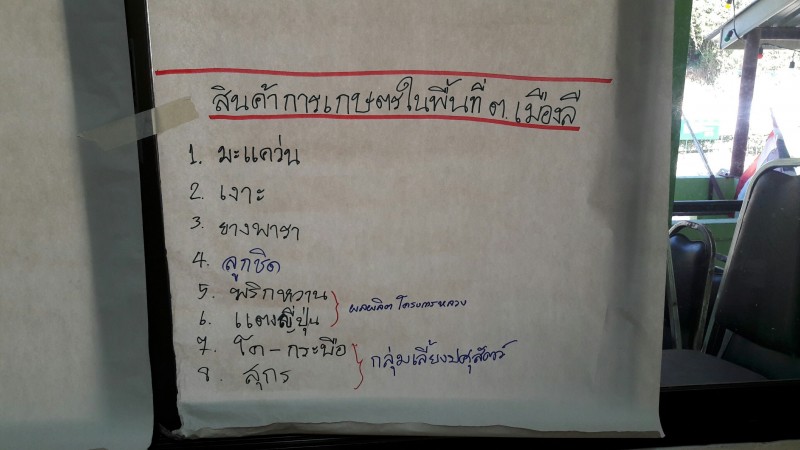 สินค้าการเกษตรในพื้นที่ ต.เมืองลี
1. มะแคว่น
2. เงาะ
3. ยางพารา
4. ลูกชิด
5. พริกหวาน
6. แตงญี่ปุ่น
ผลผลิตโครงการหลวง
7. โค - กระบือ
8. สุกร
กลุ่มเลี้ยงปศุสัตว์